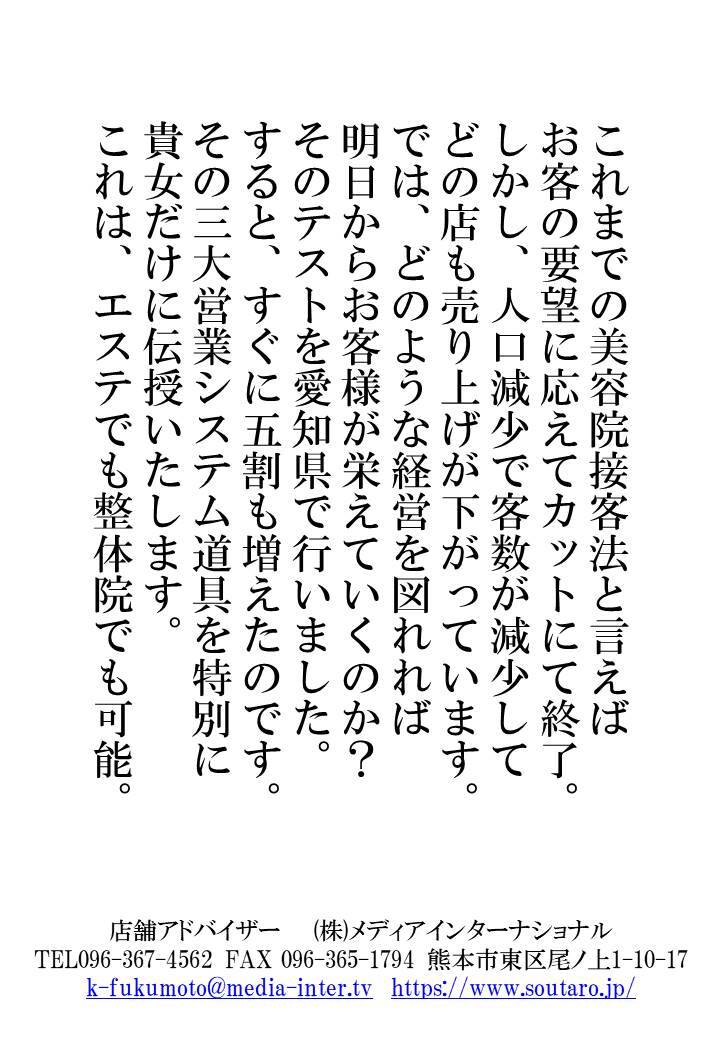 これまでの美容院接客法と言えば
お客の要望に応えてカットにて終了。
しかし、人口減少で客数が減少して
どの店も売り上げが下がっています。
では、どのような経営を図れれば
明日からお客様が栄えていくのか?
そのテストを愛知県で行いました。
すると、すぐに五割も増えたのです。
その三大営業システム道具を特別に
貴女だけに伝授いたします。
これは、エステでも整体院でも可能。
店舗アドバイザー (株)メディアインターナショナル
TEL096-367-4562 FAX 096-365-1794 熊本市東区尾ノ上1-10-17
k-fukumoto@media-inter.tv https://www.soutaro.jp/